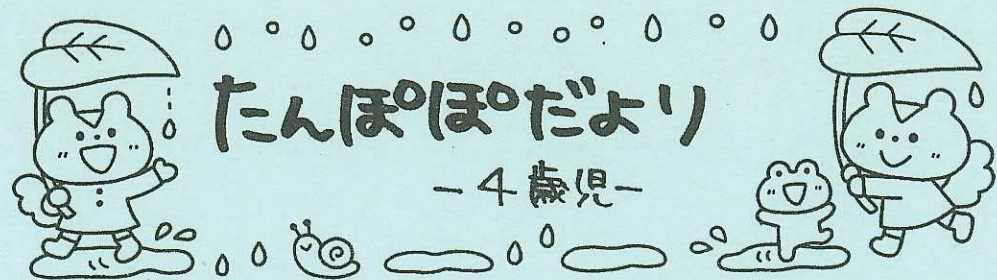 たんぽぽだより
－4歳児－